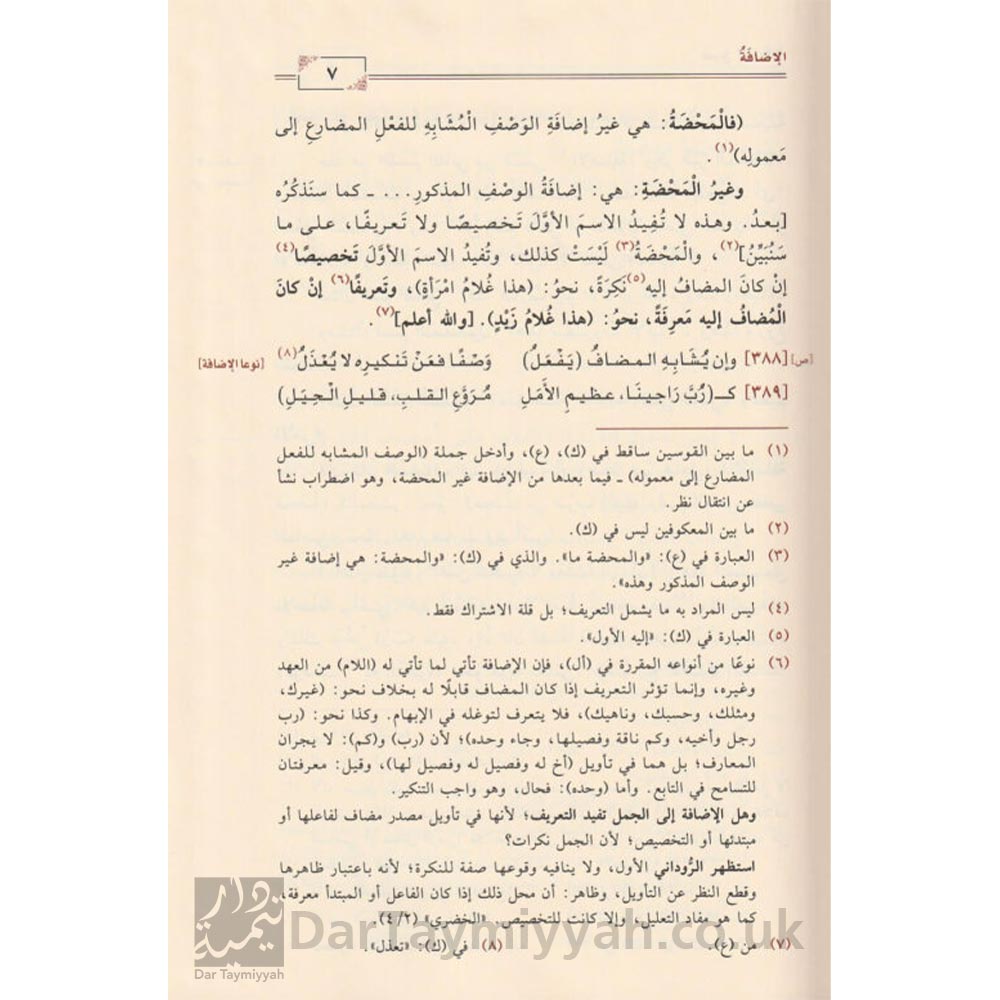 الإضافَةُ
٧
(فالْمَحْضَةُ: هي غيرُ إضافَةِ الوَصْفِ الْمُشَابِهِ للفعْلِ المضارِعِ إلى
مَعمولِه)(١).
وغيرُ الْمَحْضَةِ: هي: إضافَةُ الوصْفِ المذكورِ... ـ كما سنَذكُرُه
[بعدُ. وهذه لا تُفِيدُ الاسمَ الأوَّلَ تَخصيصًا ولا تَعريفًا، على ما
سَنُبَيِّنُ](٢)، والْمَحْضَةُ(٣) لَيْسَتْ كذلك، وتُفيدُ الاسمَ الأوَّلَ تَخصيصًا(٤)
إنْ كانَ المضافُ إليه(٥) نَكِرَةً، نحوُ: (هذا غُلامُ امْرَأةٍ)، وتَعريفًا(٦) إنْ كانَ
الْمُضافُ إليه مَعرِفَةً، نحوُ: (هذا غُلامُ زَيْدٍ). [والله أعلم](٧).
[ص] [٣٨٨] وإن يُشَابِهِ المضافُ (يَفْعَلُ) وَصْفًا فعَنْ تَنكيرِه لا يُعْذَلُ(٨) [نوعا الإضافة]
[٣٨٩] كـ(رُبَّ رَاجِينَا، عظيمِ الأَمَلِ مُرَوَّعِ القلبِ، قليلِ الْحِيَلِ)
(١) ما بين القوسين ساقط في (ك)، (ع)، وأدخل جملة (الوصف المشابه للفعل
المضارع إلى معموله) ـ فيما بعدها من الإضافة غير المحضة، وهو اضطراب نشأ
عن انتقال نظر.
(٢) ما بين المعكوفين ليس في (ك).
(٣) العبارة في (ع): «والمحضة ما». والذي في (ك): «والمحضة: هي إضافة غير
الوصف المذكور وهذه».
(٤) ليس المراد به ما يشمل التعريف؛ بل قلة الاشتراك فقط.
(٥) العبارة في (ك): «إليه الأول».
(٦) نوعًا من أنواعه المقررة في (أل)، فإن الإضافة تأتي لما تأتي له (اللام) من العهد
وغيره، وإنما تؤثر التعريف إذا كان المضاف قابلًا له بخلاف نحو: (غيرك،
ومثلك، وحسبك، وناهيك)، فلا يتعرف لتوغله في الإبهام. وكذا نحو: (رب
رجل وأخيه، وكم ناقة وفصيلها، وجاء وحده)؛ لأن (رب) و(كم): لا يجران
المعارف؛ بل هما في تأويل (أخ له وفصيل له وفصيل لها)، وقيل: معرفتان
للتسامح في التابع. وأما (وحده): فحال، وهو واجب التنكير.
وهل الإضافة إلى الجمل تفيد التعريف؛ لأنها في تأويل مصدر مضاف لفاعلها أو
مبتدئها أو التخصيص؛ لأن الجمل نكرات؟
استظهر الرُّوداني الأول، ولا ينافيه وقوعها صفة للنكرة؛ لأنه باعتبار ظاهرها
وقطع النظر عن التأويل، وظاهر: أن محل ذلك إذا كان الفاعل أو المبتدأ معرفة،
كما هو مفاد التعليل، وإلا كانت للتخصيص. «الخضري» (٤/٢).
(٧) من (ع). (٨) في (ك): «تعذل».
دار تيمية
Dar Taymiyyah
DarTaymiyyah.co.uk